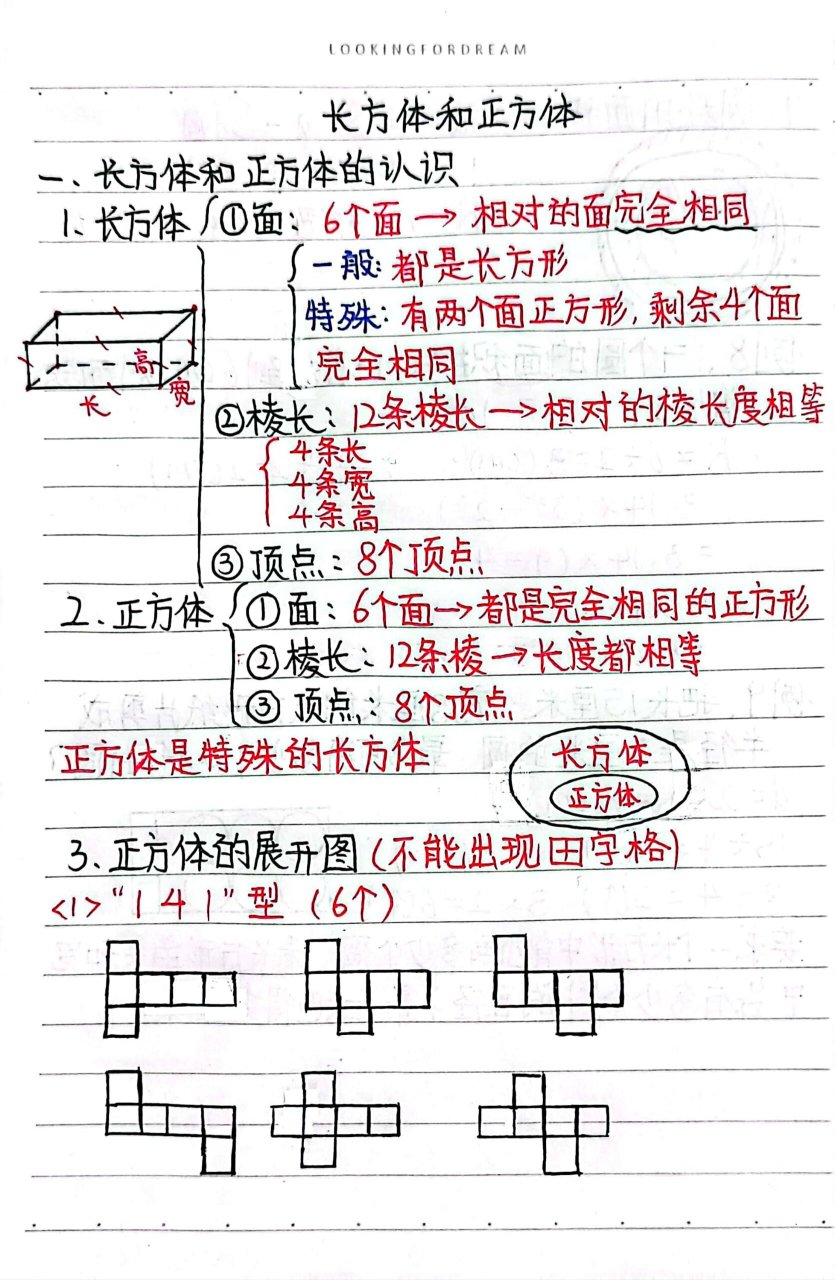 LOOKINGFORDREAM
长方体和正方体
一、长方体和正方体的认识
1. 长方体 ①面：6个面 → 相对的面完全相同
一般：都是长方形
特殊：有两个面正方形，剩余4个面
完全相同
高
宽
长
②棱长：12条棱长 → 相对的棱长度相等
4条长
4条宽
4条高
③顶点：8个顶点
2. 正方体 ①面：6个面→都是完全相同的正方形
②棱长：12条棱→长度都相等
③顶点：8个顶点
正方体是特殊的长方体
长方体
正方体
3、正方体的展开图(不能出现田字格)
<1>“141”型（6个）